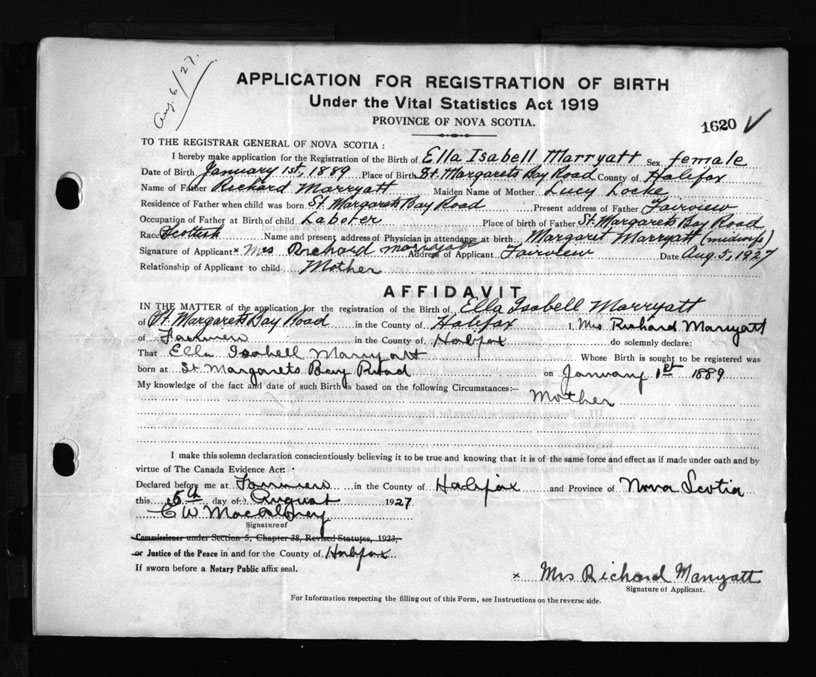 Aug. 6/27.
APPLICATION FOR REGISTRATION OF BIRTH
Under the Vital Statistics Act 1919
PROVINCE OF NOVA SCOTIA.
1620 ✓
TO THE REGISTRAR GENERAL OF NOVA SCOTIA:
I hereby make application for the Registration of the Birth of Ella Isabell Marryatt Sex female
Date of Birth January 1st, 1889 Place of Birth St. Margarets Bay Road County of Halifax
Name of Father Richard Marryatt Maiden Name of Mother Lucy Locke
Residence of Father when child was born St. Margarets Bay Road Present address of Father Fairview
Occupation of Father at Birth of child Laborer Place of birth of Father St. Margarets Bay Road
Race Scottish Name and present address of Physician in attendance at birth Margaret Marryatt (midwife)
Signature of Applicant x Mrs Richard Marryatt Address of Applicant Fairview Date Aug 5, 1927
Relationship of Applicant to child Mother
AFFIDAVIT
IN THE MATTER of the application for the registration of the Birth of Ella Isabell Marryatt
of St. Margarets Bay Road in the County of Halifax I, Mrs. Richard Marryatt
of in the County of Halifax do solemnly declare:
That Ella Isabell Marryatt Whose Birth is sought to be registered was
born at St Margarets Bay Road on January 1st 1889
My knowledge of the fact and date of such Birth is based on the following Circumstances:—
Mother
I make this solemn declaration conscientiously believing it to be true and knowing that it is of the same force and effect as if made under oath and by
virtue of The Canada Evidence Act:
Declared before me at in the County of Halifax and Province of Nova Scotia
this 5th day of August 1927
C W
Signature of
Commissioner under Section 5, Chapter 38, Revised Statutes, 1923,
or Justice of the Peace in and for the County of Halifax
If sworn before a Notary Public affix seal.
x Mrs Richard Marryatt
Signature of Applicant.
For Information respecting the filling out of this Form, see Instructions on the reverse side.